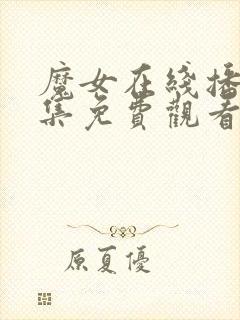 魔女在綫播
集免費觀看
原夏優